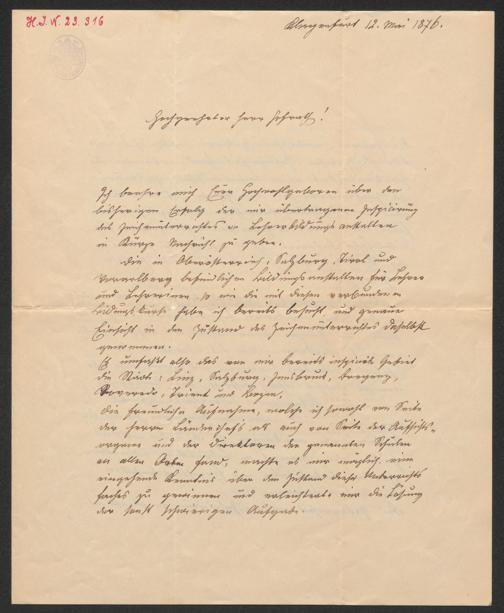 H.I.N. 23.316
Klagenfurt 12. Mai 1876.
Hochgeehrter Herr Hofrath!
Ich beehre mich Euer Hochwohlgeboren über den
bisherigen Erfolg der mir übertragenen Inspizirung
des Zeichenunterrichtes an Lehrerbildungsanstalten
in Kürze Nachricht zu geben.
Die in Oberösterreich, Salzburg, Tirol und
Vorarlberg befindlichen Bildungsanstalten für Lehrer
und Lehrerinen so wie die mit diesen verbundenen
Bildungskurse habe ich bereits besucht und genaue
Einsicht in den Zustand des Zeichenunterrichtes daselbst
genommen.
Es umfaßt also das von mir bereits inspizirte Gebiet
die Städte: Linz, Salzburg, Innsbruck, Bregenz,
Roveredo, Trient und Bozen.
Die freundliche Aufnahme, welche ich sowohl von Seite
der Herrn Länderchefs als auch von Seite der Aufsichts-
organe und der Direktoren der genannten Schulen
an allen Orten fand, machte es mir möglich eine
eingehende Kenntniß über den Zustand dieses Unterrichts
faches zu gewinnen und erleichterte mir die Lösung
der sonst schwierigen Aufgabe.